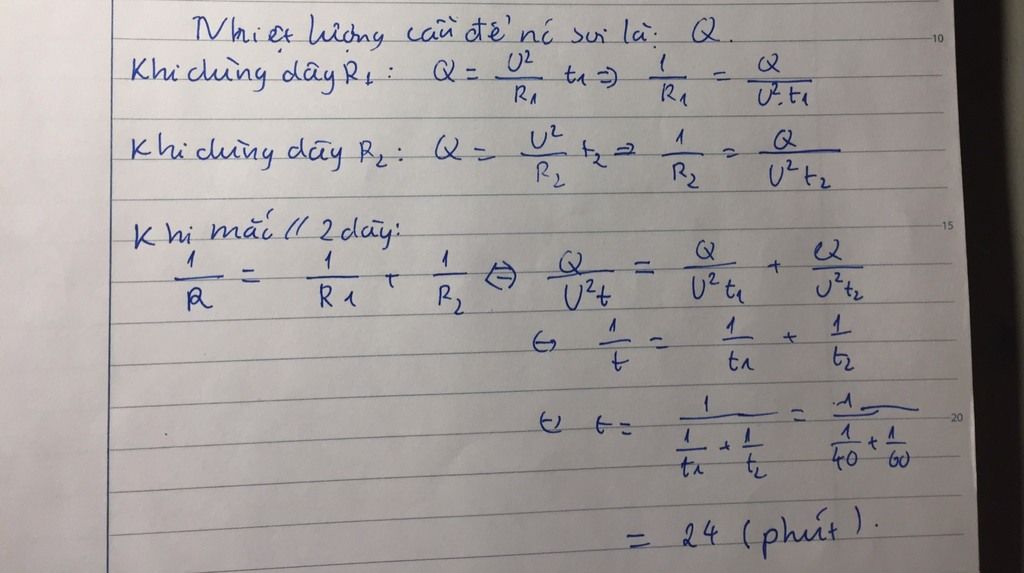 Nhiệt lượng cần để nc sôi là: Q. 10
Khi dùng dây R₁: Q = U²/R₁ t₁ ⇒ 1/R₁ = Q/U².t₁
Khi dùng dây R₂: Q = U²/R₂ t₂ ⇒ 1/R₂ = Q/U²t₂
Khi mắc // 2 dây: 15
1/R = 1/R₁ + 1/R₂ ⇔ Q/U²t = Q/U²t₁ + Q/U²t₂
⇔ 1/t = 1/t₁ + 1/t₂
⇔ t = 1/(1/t₁ + 1/t₂) = 1/(1/40 + 1/60) 20
= 24 (phút).